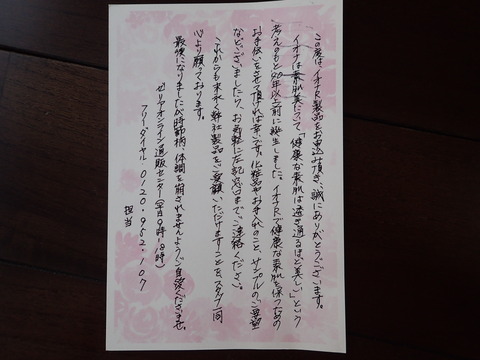 この度は、イオナR製品をお申込み頂き、誠にありがとうございます。
イオナは素肌美について「健康な素肌は透き通るほど美しい」という
考えのもと40年以上前に誕生しました。イオナRで健康な素肌を保つための
お手伝いをさせて頂ければ幸いです。化粧品やお手入れのこと、サンプルのご要望
などございましたら、お気軽に左記窓口までご連絡ください。
これからも末永く弊社製品をご愛顧いただけますことを、スタッフ一同
心より願っております。
最後になりましたが時節柄、体調を崩されませんようご自愛くださいませ。
ゼリアオンライン通販センター(平日9時-18時)
フリーダイヤル 0120-952-107
担当